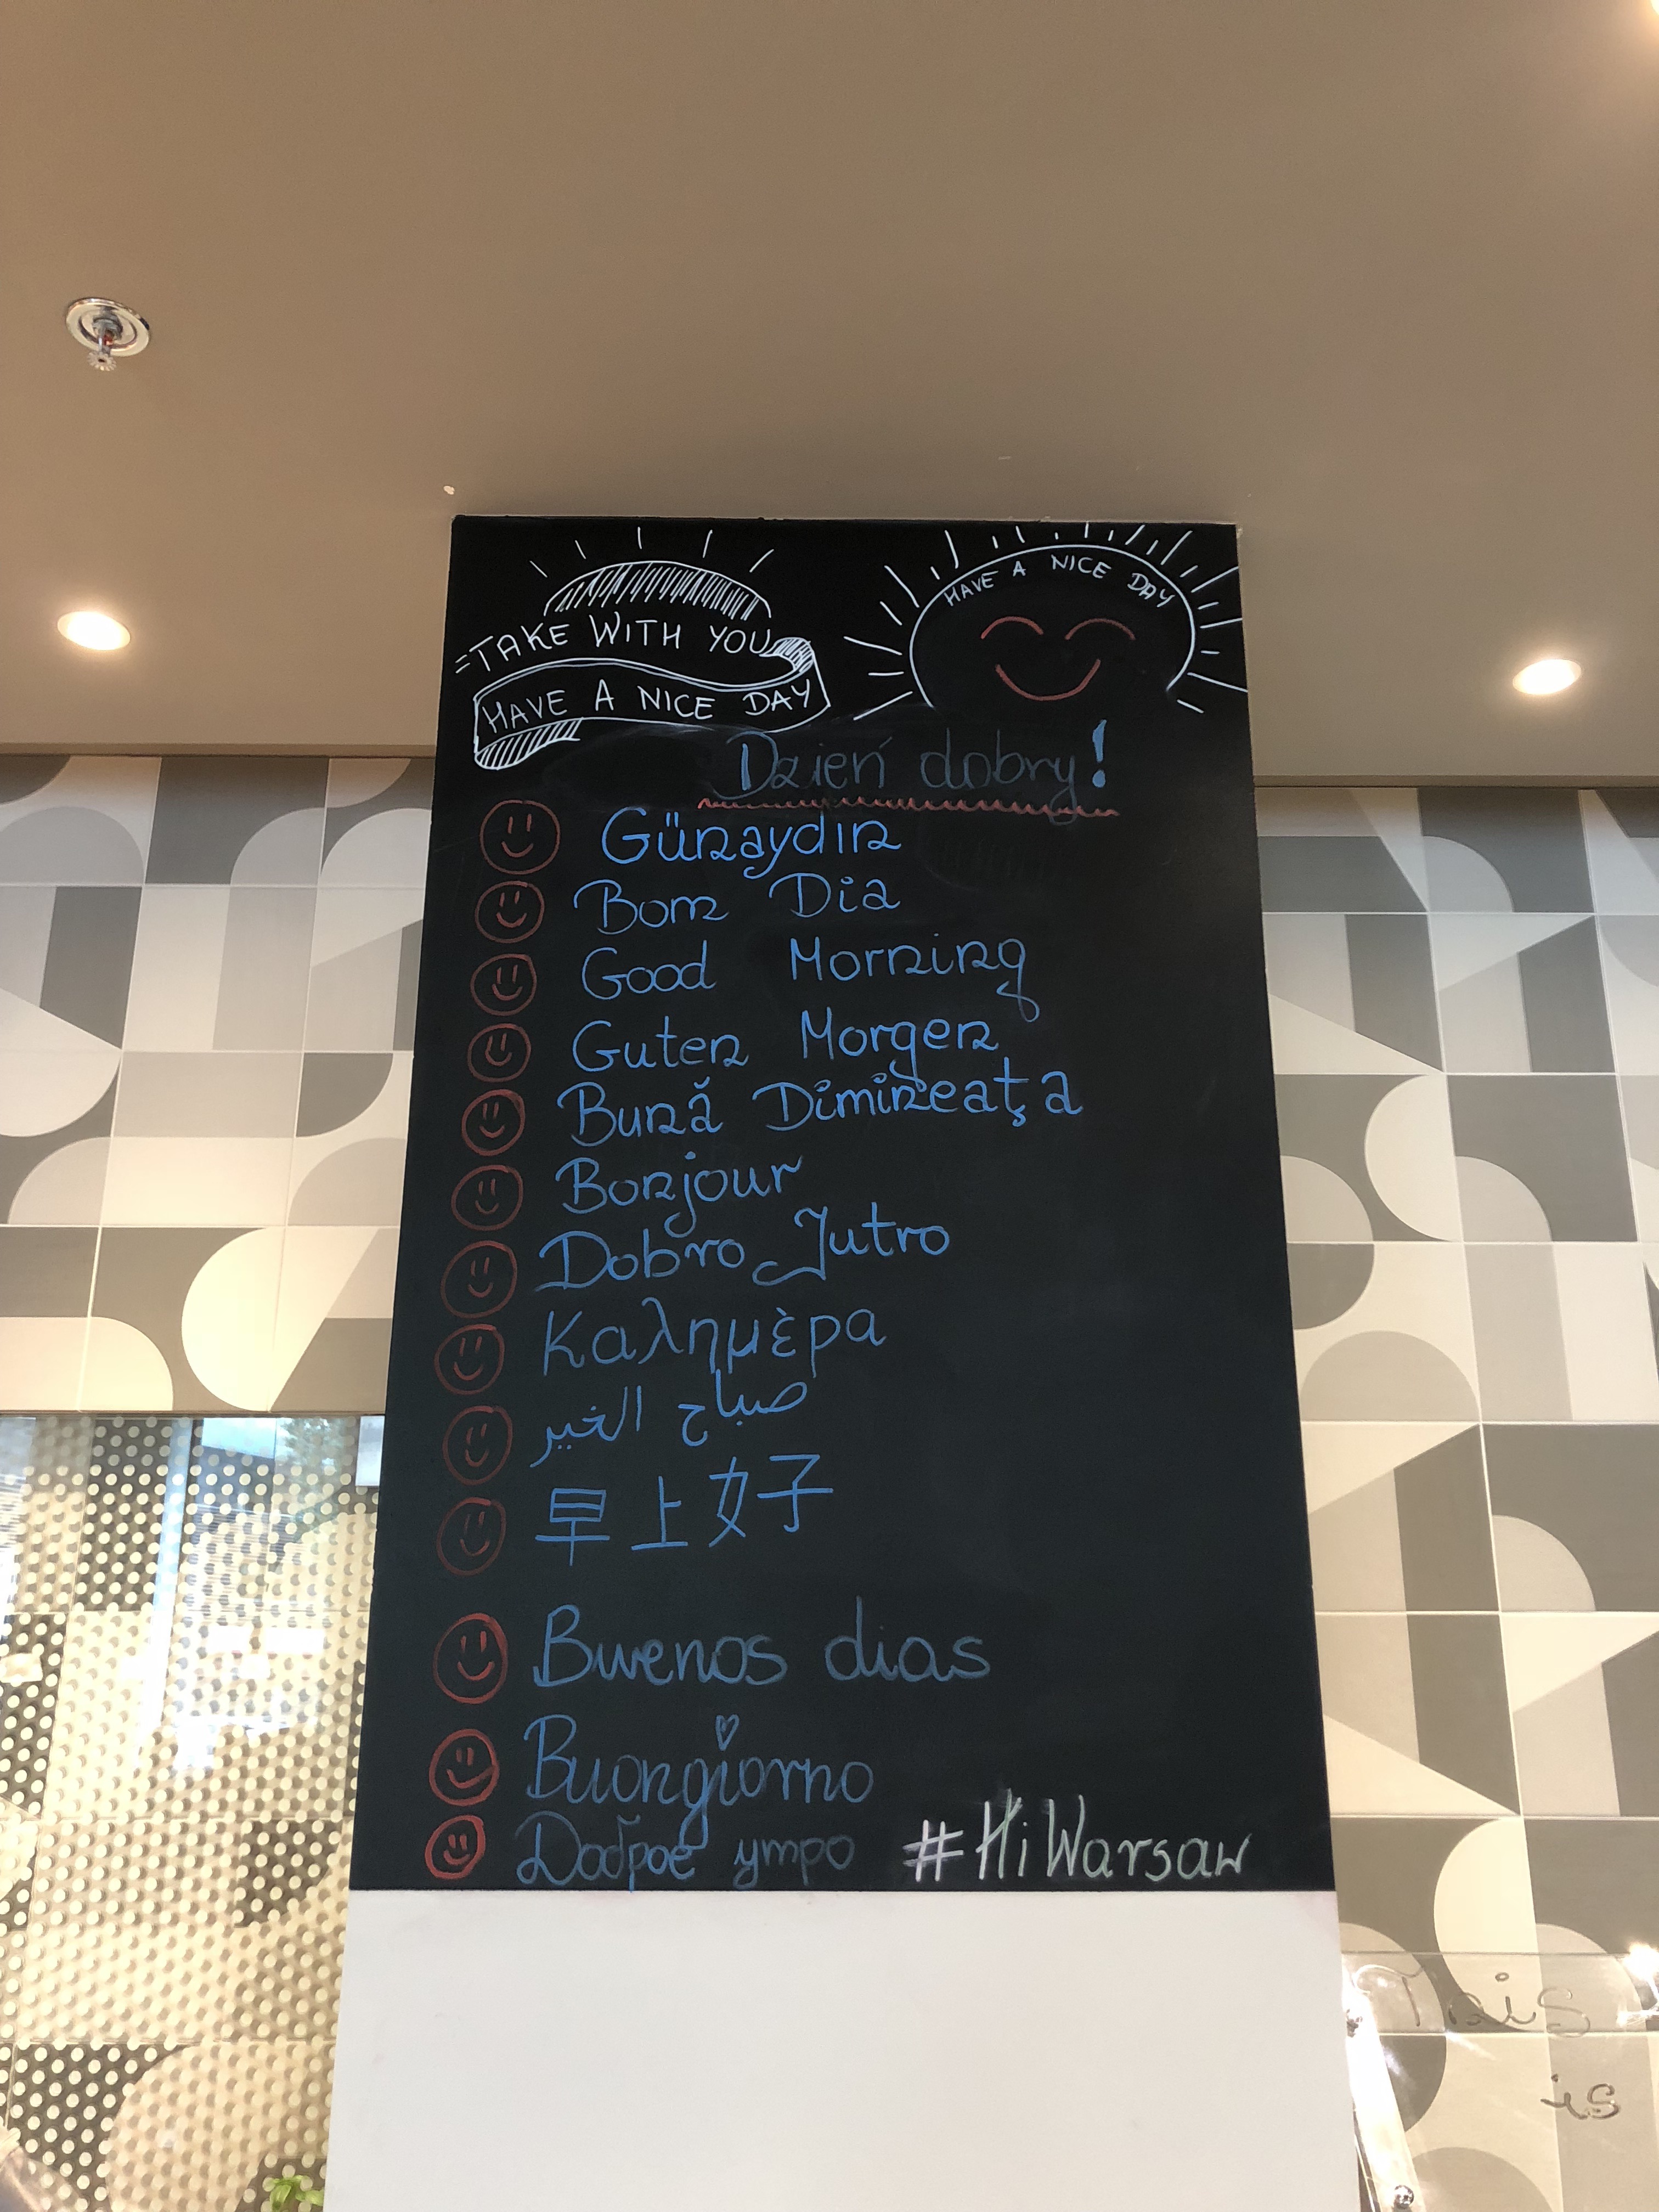 TAKE WITH YOU
HAVE A NICE DAY
HAVE A NICE DAY
Dzień dobry!
Günaydın
Bom Dia
Good Morning
Guten Morgen
Bună Dimineaţa
Bonjour
Dobro Jutro
Καλημὲρα
صباح الخير
早上好
Buenos dias
Buongiorno
Доброе утро #HiWarsaw
is